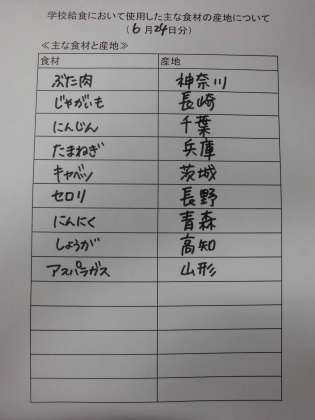 学校給食において使用した主な食材の産地について
(6月24日分)
≪主な食材と産地≫
食材 産地
ぶた肉 神奈川
じゃがいも 長崎
にんじん 千葉
たまねぎ 兵庫
キャベツ 茨城
セロリ 長野
にんにく 青森
しょうが 高知
アスパラガス 山形